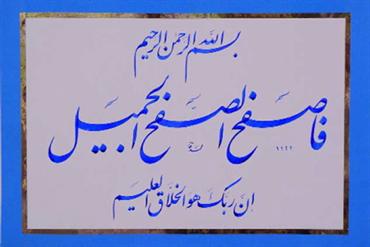 بسم الله الرحمن الرحيم
فاصفح الصفح الجميل
إن ربك هو الخلاق العليم